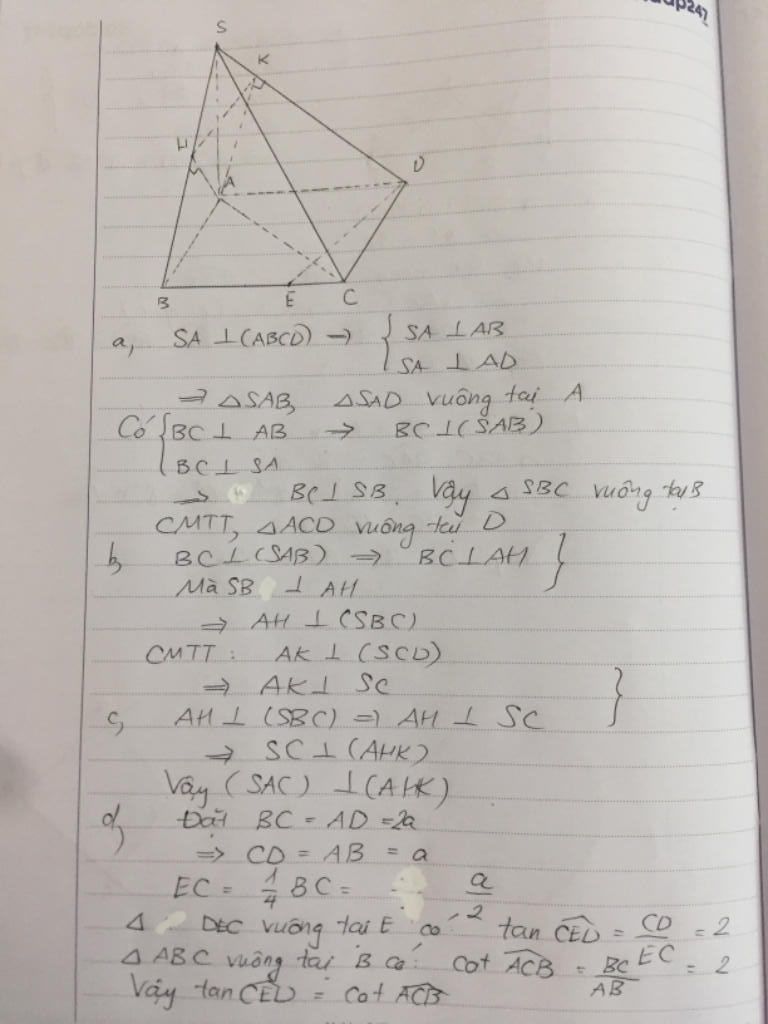 ap247
S
K
H
A
D
B
E
C
a, SA ⊥ (ABCD) → { SA ⊥ AB
SA ⊥ AD
⇒ △SAB, △SAD vuông tại A
Có { BC ⊥ AB → BC ⊥ (SAB)
BC ⊥ SA
→ BC ⊥ SB. Vậy △ SBC vuông tại B
CMTT, △ACD vuông tại D
b, BC ⊥ (SAB) ⇒ BC ⊥ AH }
Mà SB ⊥ AH
⇒ AH ⊥ (SBC)
CMTT : AK ⊥ (SCD)
⇒ AK ⊥ SC }
c, AH ⊥ (SBC) ⇒ AH ⊥ SC
⇒ SC ⊥ (AHK)
Vậy (SAC) ⊥ (AHK)
d) Đặt BC = AD = 2a
⇒ CD = AB = a
EC = 1/4 BC = a/2
△ DEC vuông tại E có: tan CED = CD/EC = 2
△ ABC vuông tại B có: cot ACB = BC/AB = 2
Vậy tan CED = cot ACB